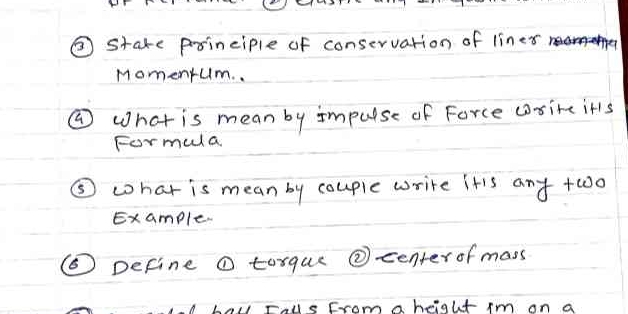 ③ State Principle of conservation of liner
Momentum..
④ what is mean by impulse of Force write it's
Formula.
⑤ what is mean by couple write it's any two
Example.
⑥ Define ① torque ② center of mass
ball Falls From a height 1m on a